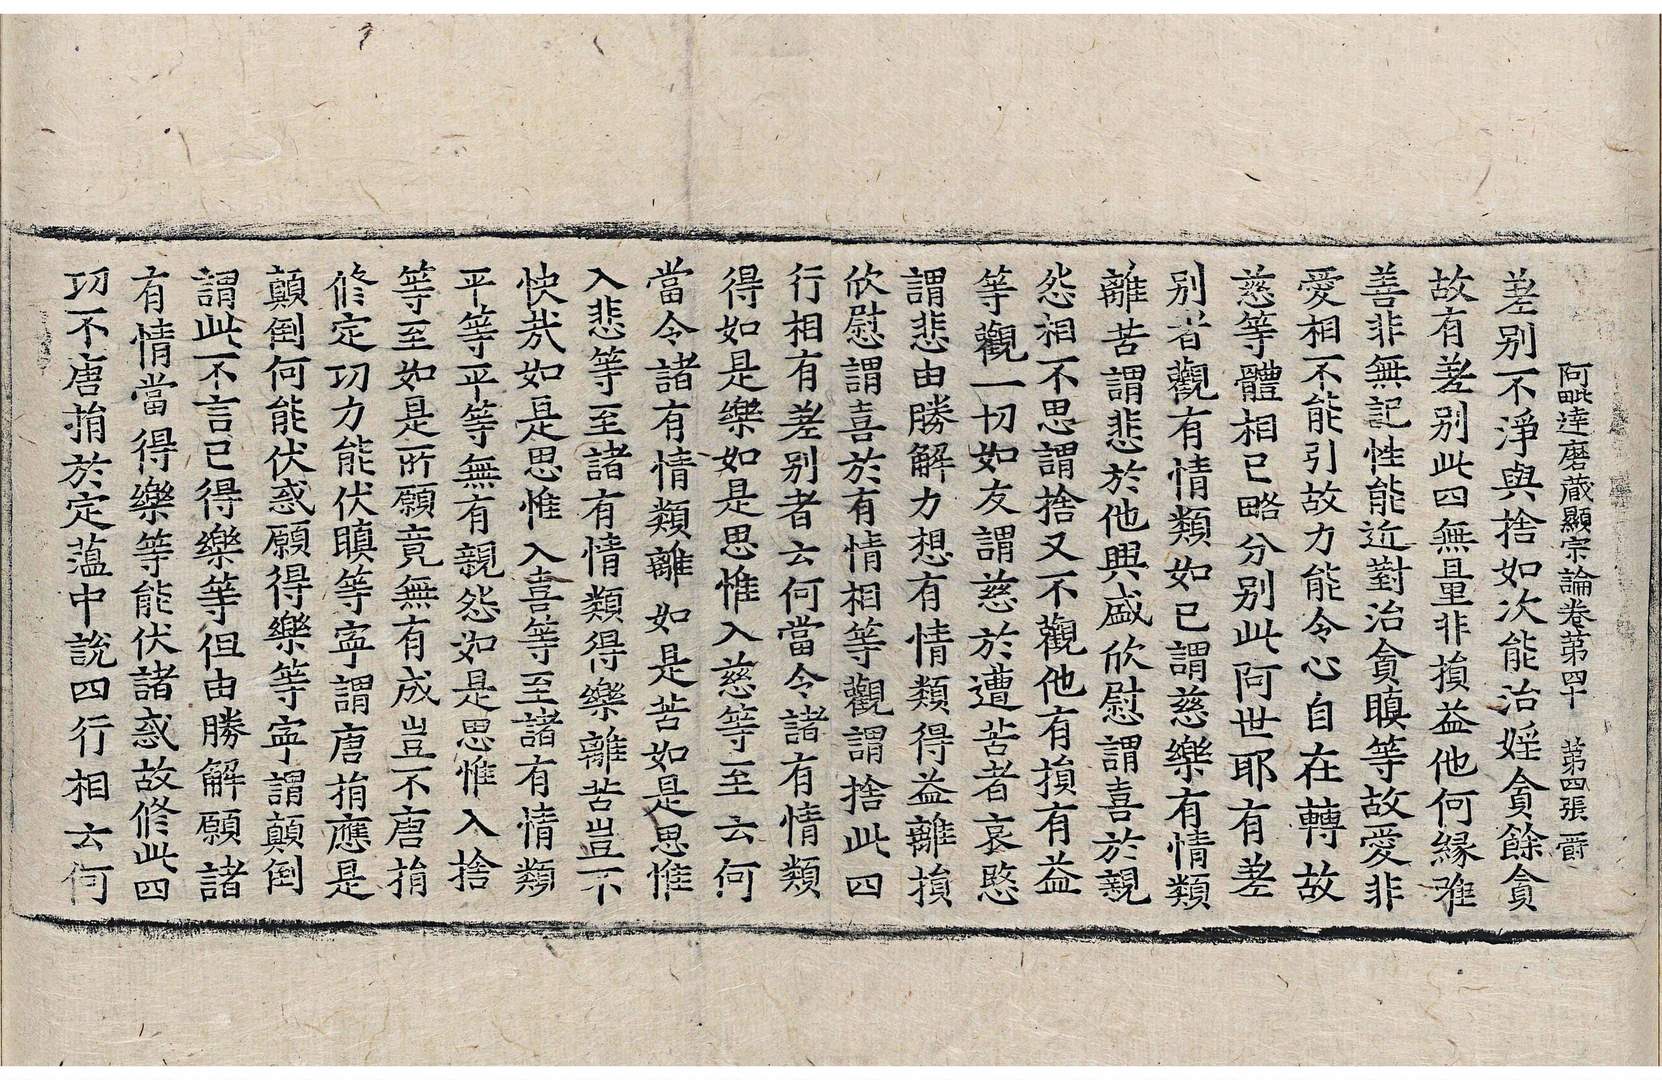 阿毗達磨藏顯宗論卷第四十　第四張　爵
差別不淨與捨如次能治婬貪餘貪
故有差別此四無量非損益他何緣雖
善非無記性能近對治貪瞋等故愛非
愛相不能引故力能令心自在轉故
慈等體相已略分別此阿世耶有差
別者觀有情類如已謂慈樂有情類
離苦謂悲於他興盛欣慰謂喜於親
怨相不思謂捨又不觀他有損有益
等觀一切如友謂慈於遭苦者哀愍
謂悲由勝解力想有情類得益離損
欣慰謂喜於有情相等觀謂捨此四
行相有差別者云何當令諸有情類
得如是樂如是思惟入慈等至云何
當令諸有情類離如是苦如是思惟
入悲等至諸有情類得樂離苦豈不
快哉如是思惟入喜等至諸有情類
平等平等無有親怨如是思惟入捨
等至如是所願竟無有成豈不唐捐
修定功力能伏瞋等寧謂唐捐應是
顛倒何能伏惑願得樂等寧謂顛倒
謂此不言已得樂等但由勝解願諸
有情當得樂等能伏諸惑故修此四
功不唐捐於定蘊中說四行相云何